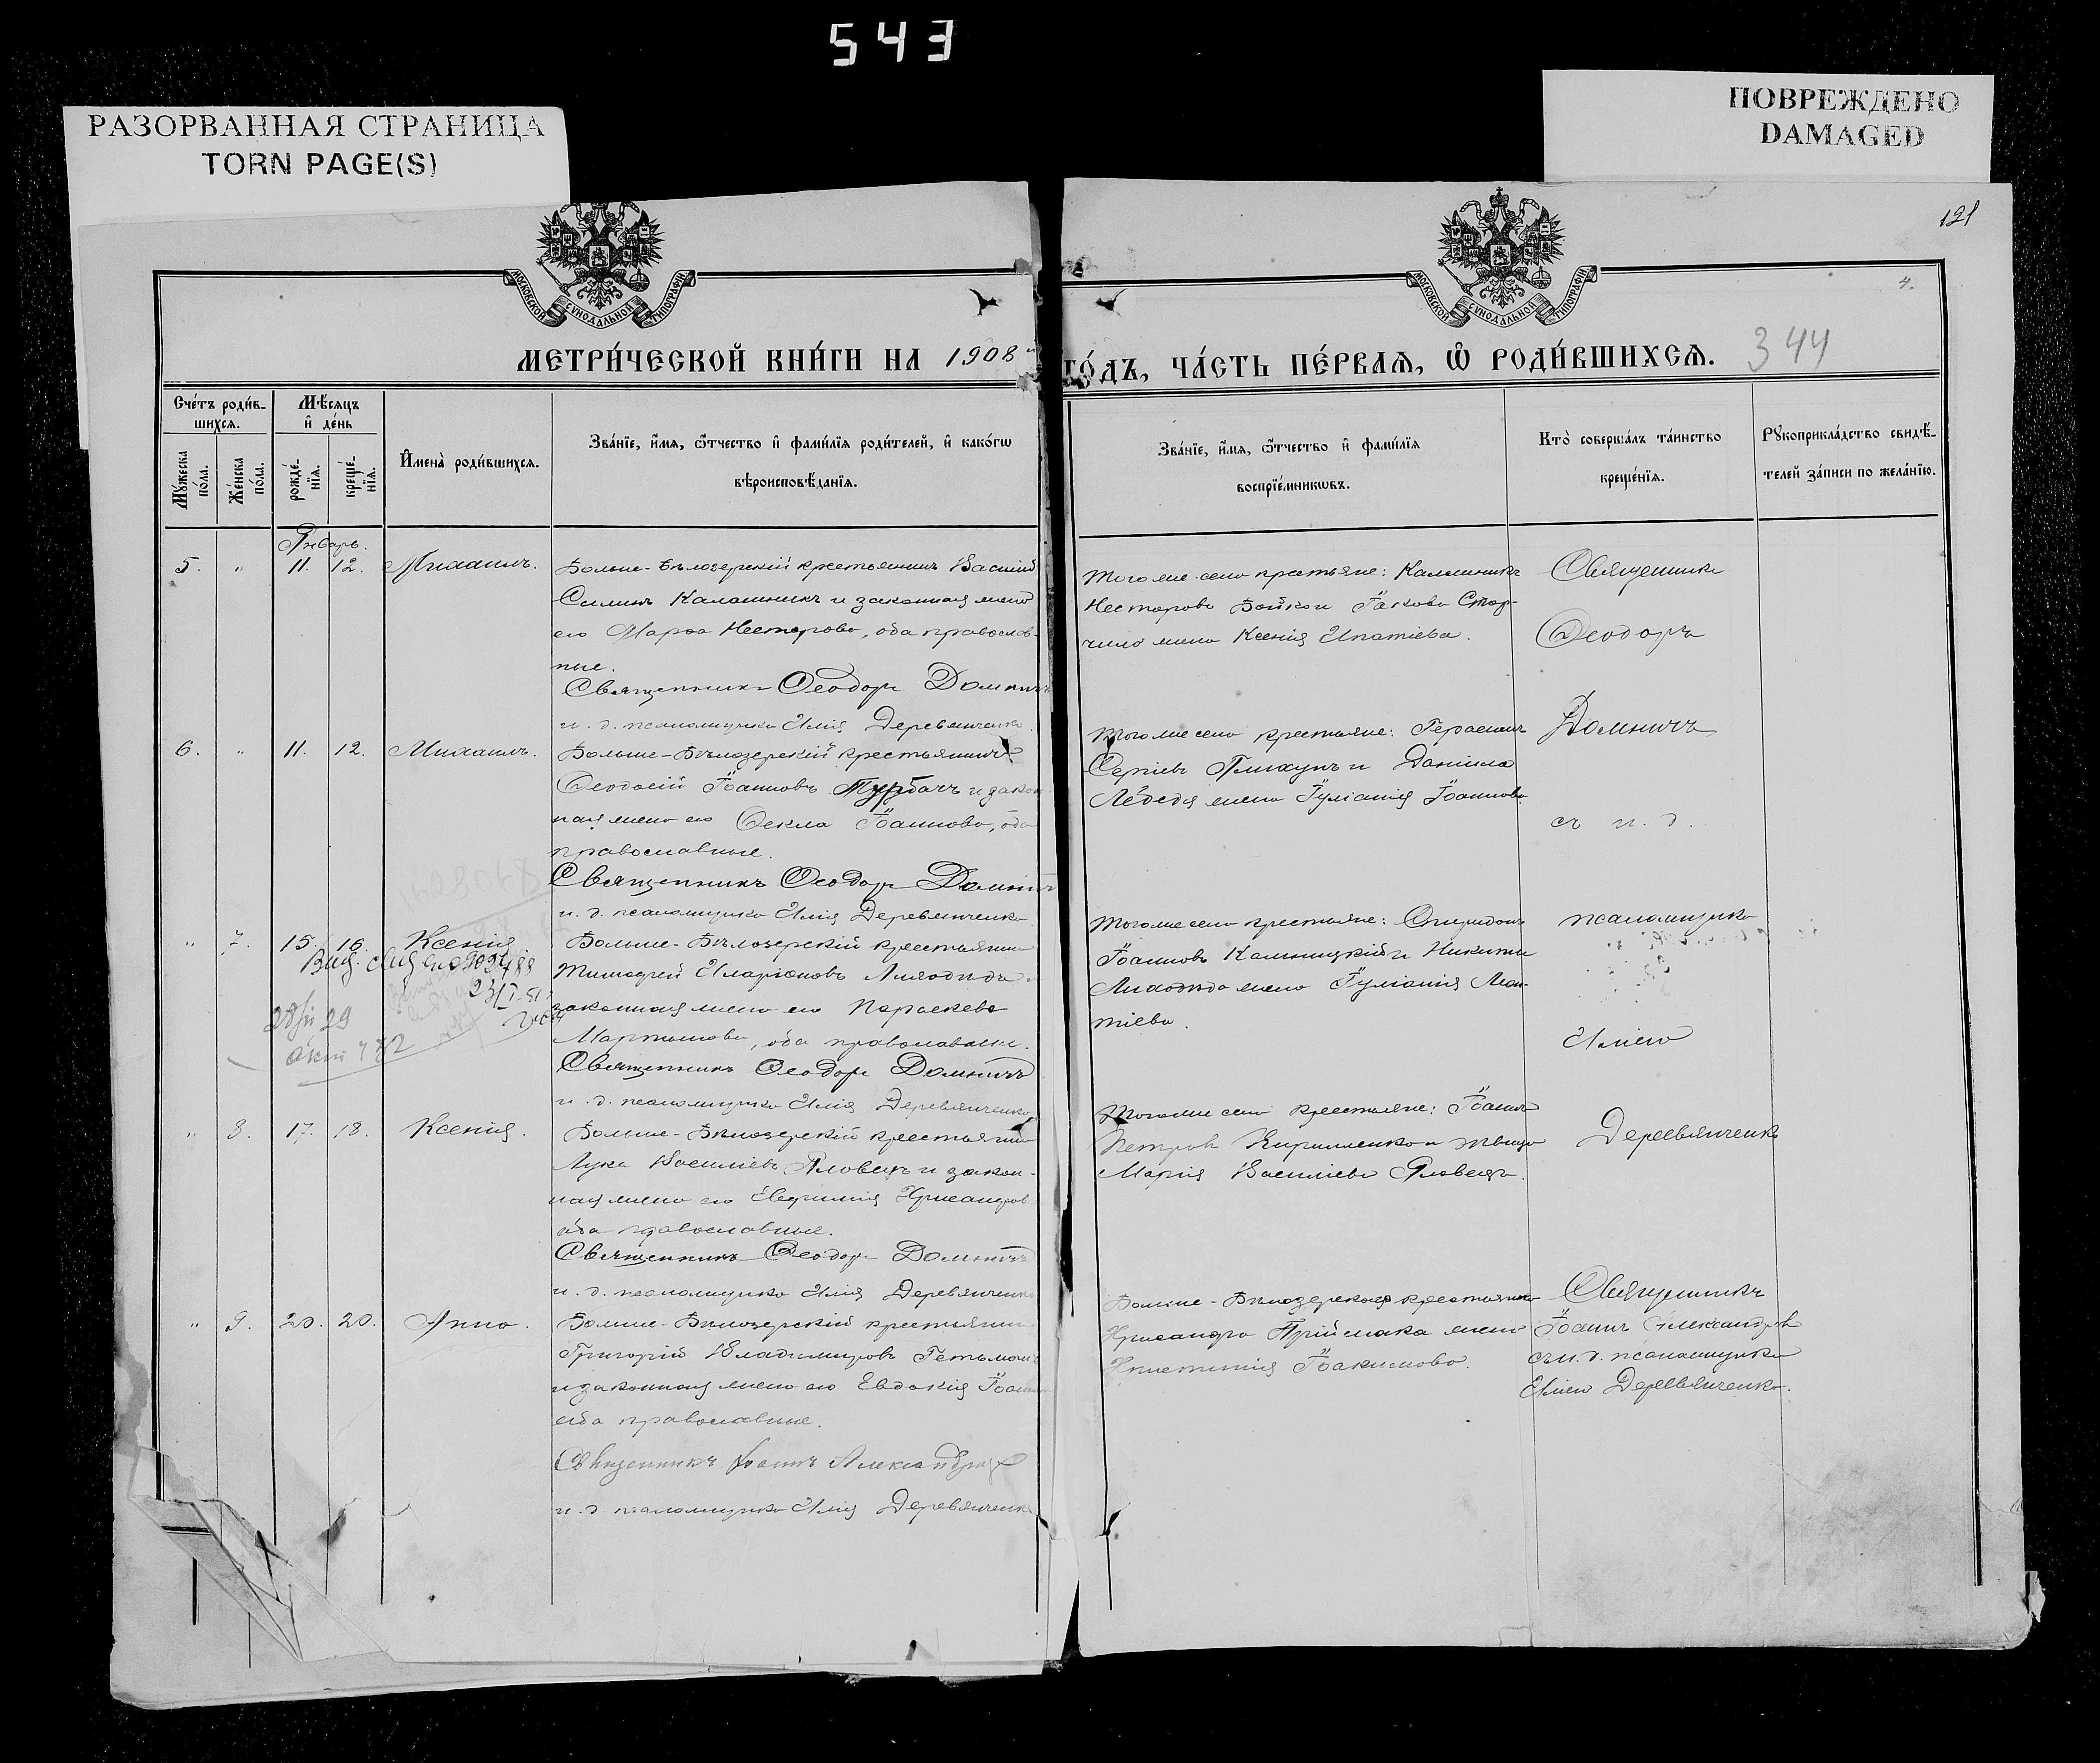 543
РАЗОРВАННАЯ СТРАНИЦА
TORN PAGE(S)
ПОВРЕЖДЕНО
DAMAGED
МОСКОВСКОЙ СѴНОДАЛЬНОЙ ТИПОГРАФІИ
МОСКОВСКОЙ СѴНОДАЛЬНОЙ ТИПОГРАФІИ
121
4.
МЕТРИ́ЧЕСКОЙ КНИ́ГИ НА 1908
ГО́ДЪ, ЧА́СТЬ ПЕ́РВАѦ, Ѡ҆ РОДИ́ВШИХСѦ. 344
Сче́тъ роди́в-
шихсѧ.
Мꙋ́жеска по́ла.
Же́нска по́ла.
Мѣ́сѧцъ и҆ де́нь
рожде́-нїѧ.
креще́-нїѧ.
И҆мена̀ роди́вшихсѧ.
Зва́нїе, и҆́мѧ, ѻ҆́тчество и҆ фами́лїѧ роди́телей, и҆ како́гѡ
вѣроисповѣ́данїѧ.
Зва́нїе, и҆́мѧ, ѻ҆́тчество и҆ фами́лїѧ
воспрїе́мникѡвъ.
Кто̀ соверша́лъ та́инство
креще́нїѧ.
Рꙋкоприкла́дство свидѣ́-
телей за́писи по жела́нїю.
Январь.
5. " 11. 12. Михаилъ.
Больше-Бѣлозерскій крестьянинъ Василій
Силинъ Калашникъ и законная жена
его Марѳа Нестерова, оба православ-
ные.
Священникъ Ѳеодоръ Домничъ
и. д. псаломщика Илія Деревянченко
Того же села крестьяне: Калинникъ
Несторовъ Бойко и Іакова Стор-
чило жена Ксенія Ипатіева.
Священникъ
Ѳеодоръ
6. " 11. 12. Михаилъ.
Больше-Бѣлозерскій крестьянинъ
Ѳеодосій Іоанновъ Турбачъ и закон
ная жена его Ѳекла Іоаннова, оба
православные.
Священникъ Ѳеодоръ Домничъ
и. д. псаломщика Илія Деревянченко
Того же села крестьяне: Герасимъ
Сергіевъ Плихунъ и Даніила
Лебедя жена Іуліанія Іоаннова
Домничъ
съ и. д.
" 7. 15. 16. Ксенія
28/
29
акт 472
Больше-Бѣлозерскій крестьянинъ
Тимоѳей Иларіоновъ Лиходѣдъ и
законная жена его Параскева
Мартинова, оба православные.
Священникъ Ѳеодоръ Домничъ
и. д. псаломщика Илія Деревянченко
Того же села крестьяне: Спиридонъ
Іоанновъ Калницкій и Никиты
Лиходѣда жена Іуліанія Леон-
тіева.
псаломщика
Иліею
" 8. 17. 18. Ксенія.
Больше-Бѣлозерскій крестьянинъ
Лука Василіевъ Яловецъ и закон-
ная жена его Евфимія Хрисанфова
оба православные.
Священникъ Ѳеодоръ Домничъ
и. д. псаломщика Илія Деревянченко
Того же села крестьяне: Іоаннъ
Петровъ Кириленко и дѣвица
Марія Василіева Яловецъ.
Деревянченко
" 9. 20. 20. Анна.
Больше-Бѣлозерскій крестьянинъ
Григорій Владиміровъ Гетьманъ
и законная жена его Евдокія Іоанн
оба православные.
Священникъ Іоаннъ Александровъ
и. д. псаломщика Илія Деревянченко
Больше-Бѣлозерскаго крестьянина
Хрисанфа Пріймака жена
Христинія Іоакимова.
Священникъ
Іоаннъ Александровъ
съ и. д. псаломщика
Иліею Деревянченко.